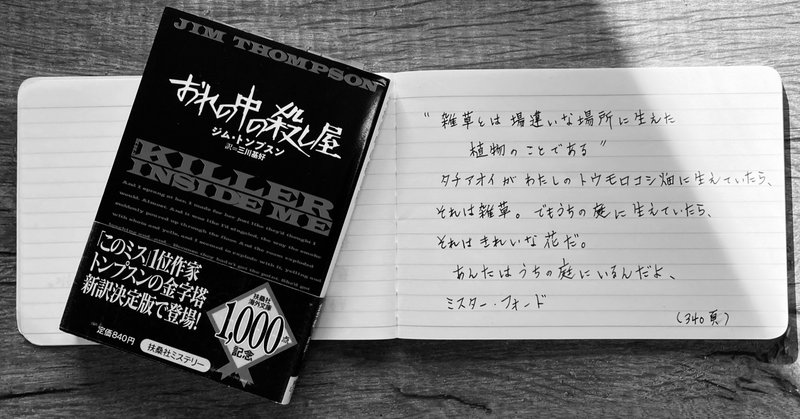 JIM THOMPSON
おれの中の殺し屋
ジム・トンプスン
訳=三川基好
KILLER
INSIDE ME
「このミス」1位作家
トンプスンの金字塔
新訳決定版で登場!
定価840円
扶桑社ミステリー
扶桑社
海外文庫
1,000点
記念
“雑草とは場違いな場所に生えた
植物のことである”
タチアオイがわたしのトウモロコシ畑に生えていたら、
それは雑草。でもうちの庭に生えていたら、
それはきれいな花だ。
あんたはうちの庭にいるんだよ、
ミスター・フォード
(340頁)